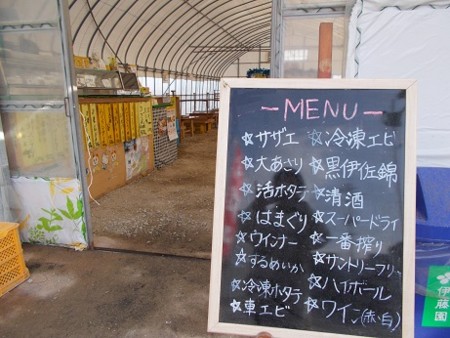 ーMENUー
☆サザエ
☆大あさり
☆活ホタテ
☆はまぐり
☆ウインナー
☆するめいか
☆冷凍ホタテ
☆車エビ
☆冷凍エビ
☆黒伊佐錦
☆清酒
☆スーパードライ
☆一番搾り
☆サントリーフリー
☆ハイボール
☆ワイン(赤・白)
伊藤園